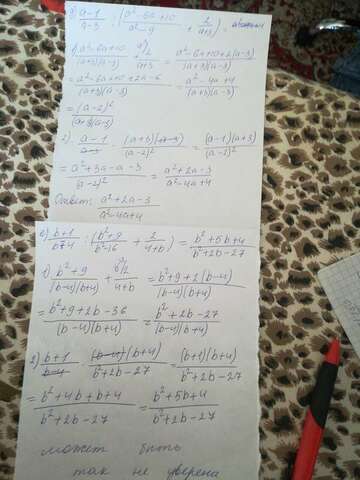 д) a-1/a-3 : (a²-6a+10/a²-9 + 2/a+3) =
1) a²-6a+10/(a+3)(a-3) + 2/a+3 = a²-6a+10+2(a-3)/(a+3)(a-3)
= a²-6a+10+2a-6/(a+3)(a-3) = a²-4a+4/(a+3)(a-3)
= (a-2)²/(a+3)(a-3)
2) a-1/a-3 · (a+3)(a-3)/(a-2)² = (a-1)(a+3)/(a-2)²
= a²+3a-a-3/(a-2)² = a²+2a-3/a²-4a+4
Ответ: a²+2a-3/a²-4a+4
e) b+1/b-4 : (b²+9/b²-16 + 2/4+b) = b²+5b+4/b²+2b-27
1) b²+9/(b-4)(b+4) + 2/4+b = b²+9+2(b-4)/(b-4)(b+4)
= b²+9+2b-36/(b-4)(b+4) = b²+2b-27/(b-4)(b+4)
2) b+1/b-4 · (b-4)(b+4)/b²+2b-27 = (b+1)(b+4)/b²+2b-27
= b²+4b+b+4/b²+2b-27 = b²+5b+4/b²+2b-27
может быть
так не уверена